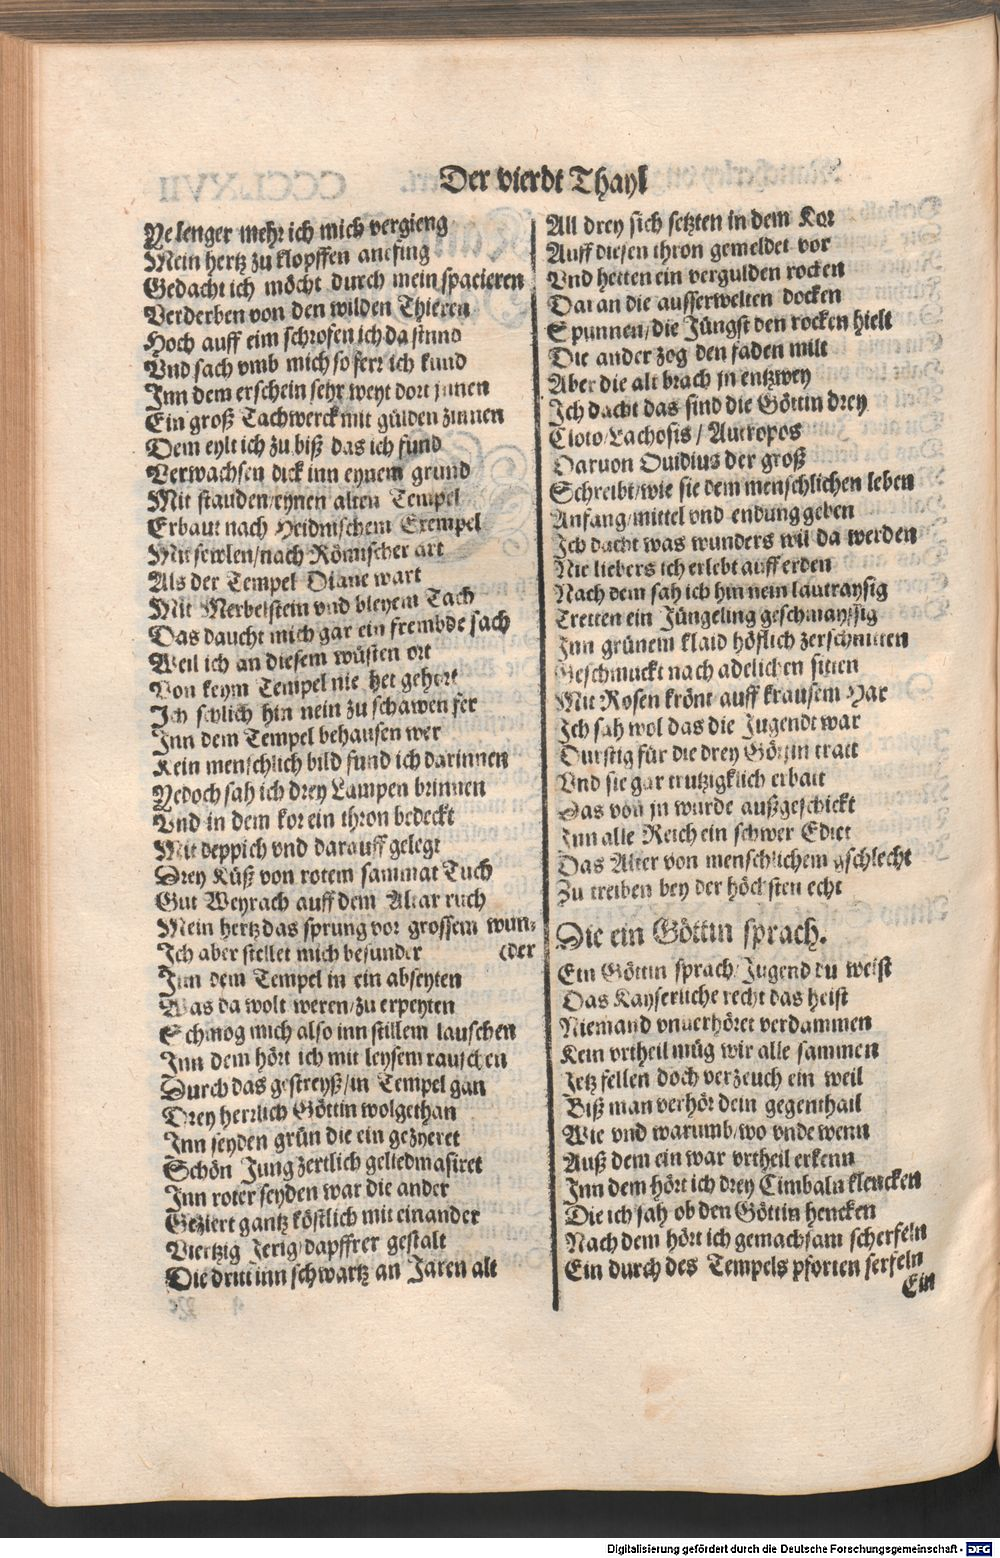 Der vierdt Thayl
Ye lenger mehr ich mich vergieng
Mein hertz zu klopffen anefing
Gedacht ich möcht durch mein spacieren
Verderben von den wilden Thieren
Hoch auff eim schrofen ich da stund
Vnd sach vmb mich so ferr ich kund
Inn dem erschein sehr weyt dort jnnen
Ein groß Tachwerck mit gülden zinnen
Dem eylt ich zu biß das ich fund
Verwachsen dick inn eynem grund
Mit stauden/eynen alten Tempel
Erbaut nach Heidnischem Exempel
Mit sewlen/nach Römischer art
Als der Tempel Diane wart
Mit Merbelstein vnd bleyem Tach
Das daucht mich gar ein frembde sach
Weil ich an diesem wüsten ort
Von keym Tempel nie het gehort
Ich schlich hin nein zu schawen fer
Inn dem Tempel behausen wer
Kein menschlich bild fund ich darinnen
Yedoch sah ich drey Lampen brinnen
Vnd in dem kor ein thron bedeckt
Mit deppich vnd darauff gelegt
Drey Küß von rotem sammat Tuch
Gut Weyrach auff dem Altar ruch
Mein hertz das sprung vor grossem wun-
Ich aber stellet mich besunder (der
Inn dem Tempel in ein abseyten
Was da wolt weren/zu erpeyten
Schmog mich also inn stillem lauschen
Inn dem hört ich mit leysem rauschen
Durch das gestreyß/in Tempel gan
Drey herrlich Göttin wolgethan
Inn seyden grün die ein gezyeret
Schön Jung zertlich geliedmasiret
Inn roter seyden war die ander
Geziert gantz köstlich mit einander
Viertzig Jerig/dapffrer gestalt
Die dritt inn schwartz an Jaren alt
All drey sich setzten in dem Kor
Auff diesen thron gemeldet vor
Vnd hetten ein vergulden rocken
Daran die ausserwelten docken
Spunnen/die Jüngst den rocken hielt
Die ander zog den faden milt
Aber die alt brach jn entzwey
Ich dacht das sind die Göttin drey
Cloto/Lachosis/Autropos
Daruon Ouidius der groß
Schreibt/wie sie dem menschlichen leben
Anfang/mittel vnd endung geben
Ich dacht was wunders wil da werden
Nie liebers ich erlebt auff erden
Nach dem sah ich hin nein lautraysig
Tretten ein Jüngeling geschmaytzig
Inn grünem klaid höflich zerschnitten
Geschmuckt nach adelichen sitten
Mit Rosen krönt auff krausem Har
Ich sah wol das die Jugendt war
Durstig für die drey Göttin tratt
Vnd sie gar trutzigklich erbatt
Das von jn wurde außgeschickt
Inn alle Reich ein schwer Edict
Das Alter von menschlichem gschlecht
Zu treiben bey der höchsten echt
Die ein Göttin sprach.
Ein Göttin sprach/Jugend du weist
Das Kayserliche recht das heist
Niemand vnuerhöret verdammen
Kein vrtheil müg wir alle sammen
Jetz fellen doch verzeuch ein weil
Biß man verhör dein gegenthail
Wie vnd warumb/wo vnde wenn
Auß dem ein war vrtheil erkenn
Inn dem hört ich drey Cimbaln klencken
Die ich sah ob den Göttin hencken
Nach dem hört ich gemachsam scherfeln
Ein durch des Tempels pforten serfeln
Ein
Digitalisierung gefördert durch die Deutsche Forschungsgemeinschaft - DFG